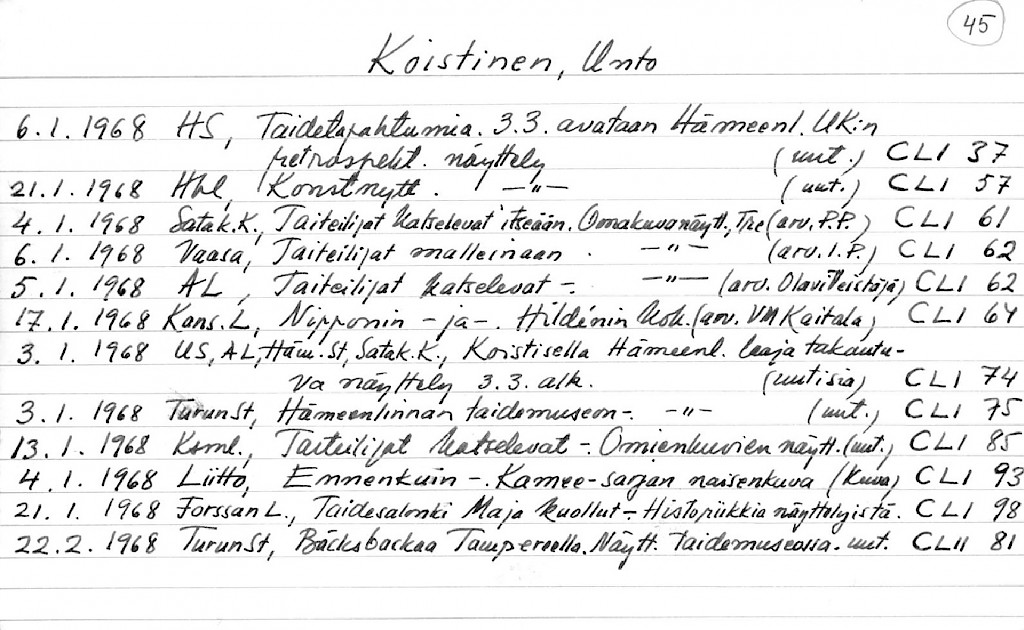 45
Koistinen, Unto
6.1.1968 HS, Taidetapahtumia. 3.3. avataan Hämeenl. UK:n
retrospekt. näyttely (uut.) CLI 37
21.1.1968 Hbl, Konstnytt. —"— (uut.) CLI 57
4.1.1968 Satak.K., Taiteilijat katselevat itseään. Omakuvanäytt., Tre (arv. P.P.) CLI 61
6.1.1968 Vaasa, Taiteilijat malleinaan. —"— (arv. I.P.) CLI 62
5.1.1968 AL, Taiteilijat katselevat -. —"— (arv. Olavi Veistäjä) CLI 62
17.1.1968 Kans.L, Nipponin -ja-. Hildénin kok. (arv. VM Kaitala) CLI 64
3.1.1968 US, AL, Häm.St, Satak.K., Koistisella Hämeenl. laaja takautu-
va näyttely 3.3. alk. (uutisia) CLI 74
3.1.1968 TurunSt, Hämeenlinnan taidemuseon-. -"- (uut.) CLI 75
13.1.1968 Ksml., Taiteilijat katselevat -. Omienkuvien näytt. (uut.) CLI 85
4.1.1968 Liitto, Ennenkuin -. Kamee-sarjan naisenkuva (kuva) CLI 93
21.1.1968 Forssan L., Taidesalonki Maja kuollut -. Historiikkia näyttelyistä. CLI 98
22.2.1968 TurunSt, Bäcksbackaa Tampereella. Näytt. taidemuseossa. uut. CLII 81